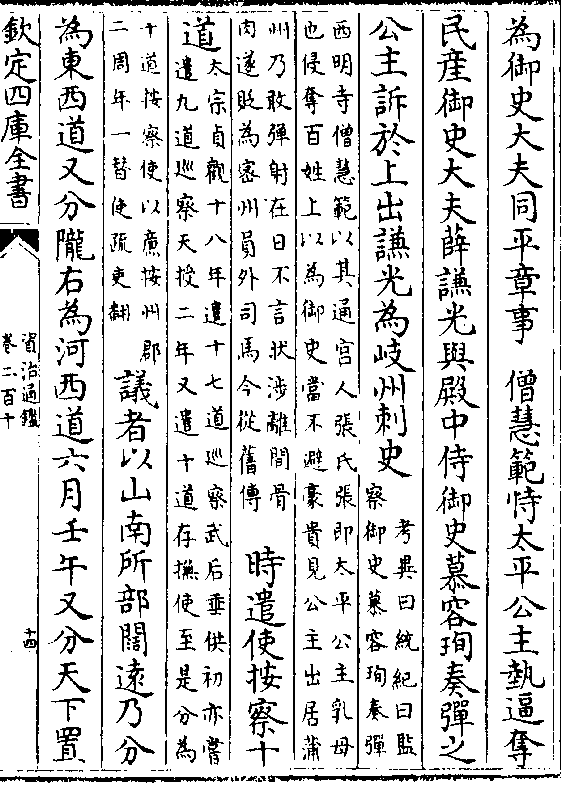 為御史大夫同平章事　僧慧範恃太平公主埶逼奪
民産御史大夫薛謙光與殿中侍御史慕容珣奏彈之
公主訴於上出謙光為岐州刺史
考異曰統紀曰監
察御史慕容珣奏彈
西明寺僧慧範以其通宫人張氏張即太平公主乳母
也侵奪百姓上以為御史當不避豪貴見公主出居蒲
州乃敢彈射在日不言狀涉離間骨
肉遂貶為密州員外司馬今從舊傳
時遣使按察十
道
太宗貞觀十八年遣十七道巡察武后垂供初亦嘗
遣九道巡察天授二年又遣十道存撫使至是分為
十道按察使以廉按州郡
二周年一替使疏吏翻
議者以山南所部闊遠乃分
為東西道又分隴右為河西道六月壬午又分天下置
欽定四庫全書
資治通鑑
卷二百十
十四